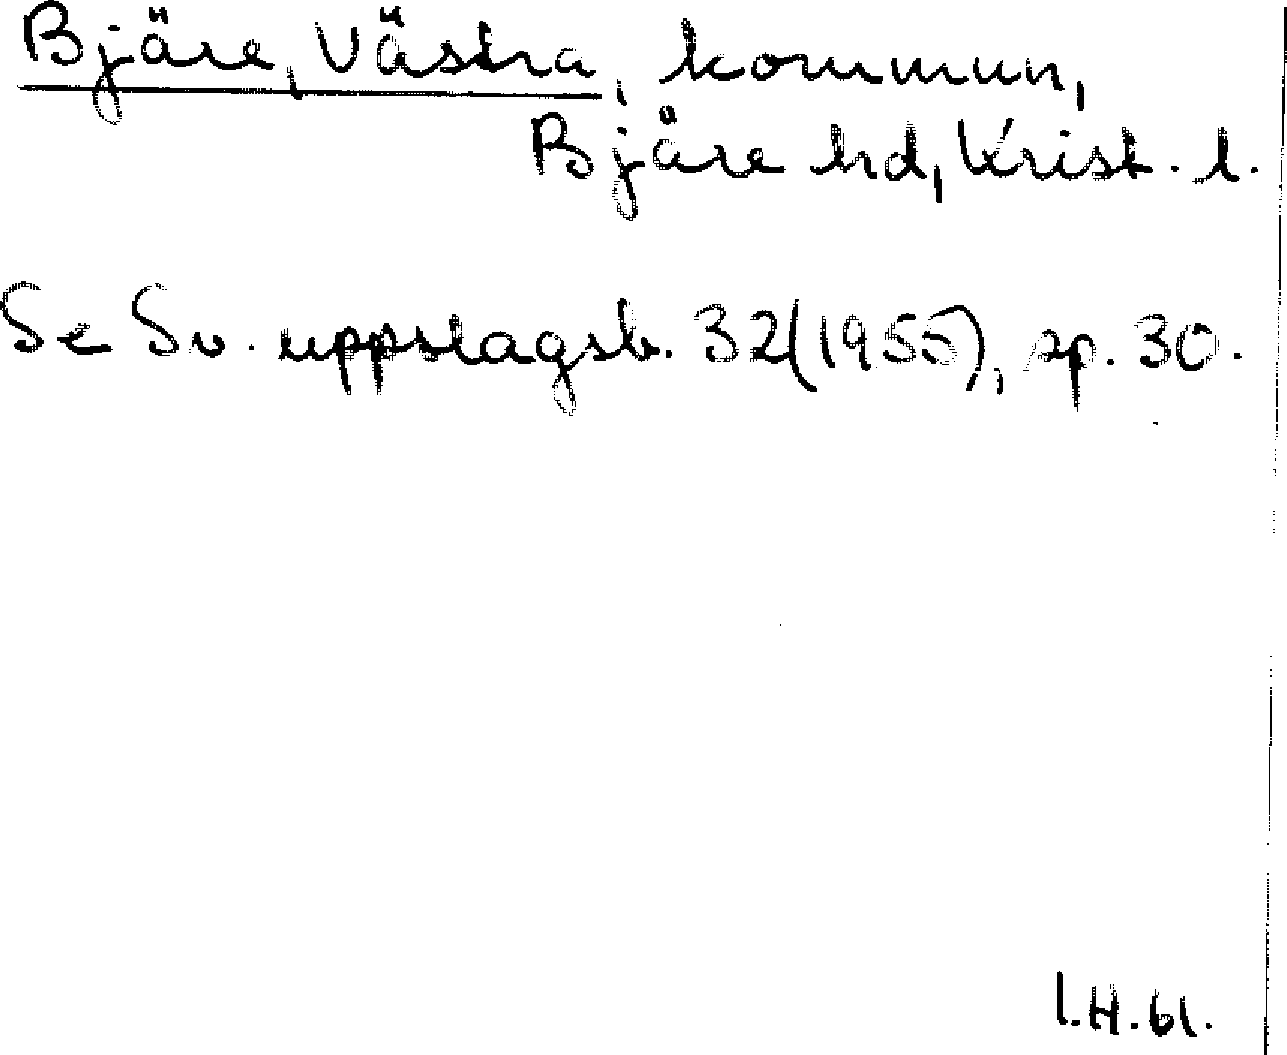 Bjäre, Västra, kommun,
Bjäre hd, Krist. l.
Se Sv. uppslagsb. 32(1955), sp. 30.
I.H.61.